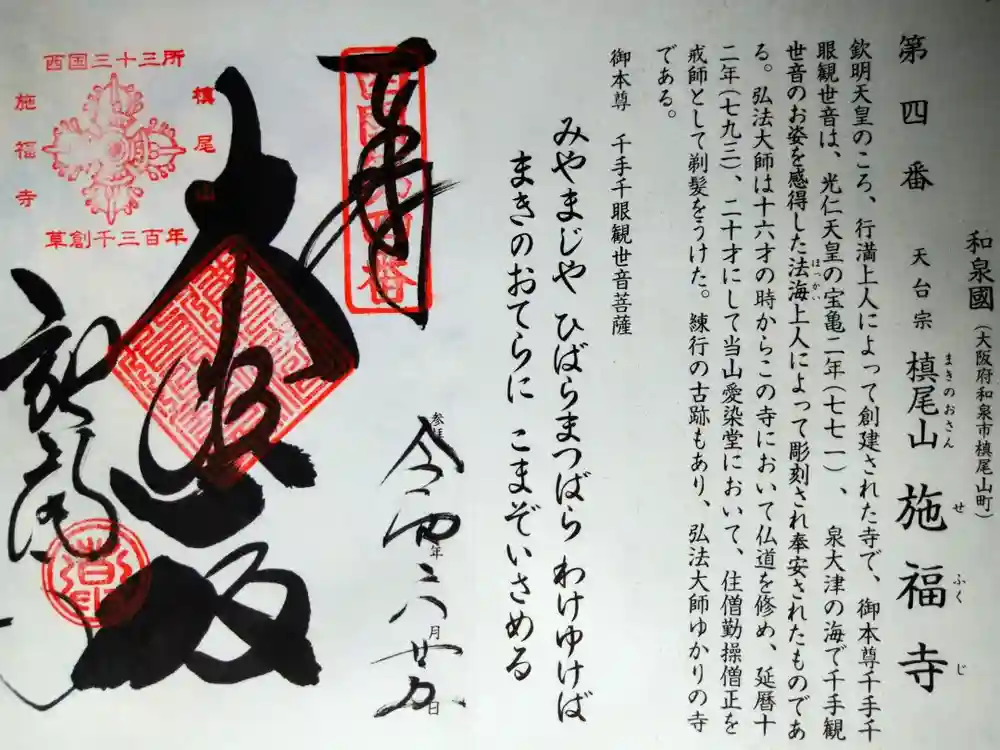 和泉國（大阪府和泉市槙尾山町）
第四番 天台宗 槙尾山 施福寺
まきのおさん せふくじ
欽明天皇のころ、行満上人によって創建された寺で、御本尊千手千
眼観世音は、光仁天皇の宝亀二年（七七一）、泉大津の海で千手観
世音のお姿を感得した法海上人によって彫刻され奉安されたものであ
ほっかい
る。弘法大師は十六才の時からこの寺において仏道を修め、延暦十
二年（七九三）、二十才にして当山愛染堂において、住僧勤操僧正を
戒師として剃髪をうけた。練行の古跡もあり、弘法大師ゆかりの寺
である。
御本尊 千手千眼観世音菩薩
みやまじや ひばらまつばら わけゆけば
まきのおてらに こまぞいさめる
奉
西国第四番
参拝
令四年六月廿五日
西国三十三所
槙尾山
施福寺
草創千三百年